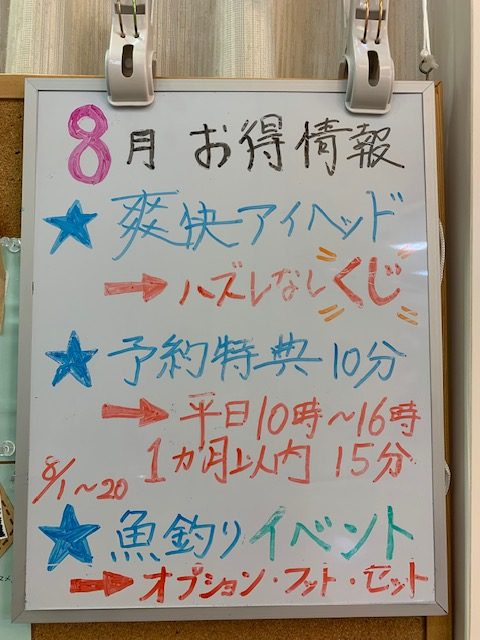 8月 お得情報
★ 爽快アイヘッド
→ ハズレなしくじ
★ 予約特典 10分
→ 平日10時～16時
1カ月以内 15分
8/1～20
★ 魚釣りイベント
→ オプション・フット・セット